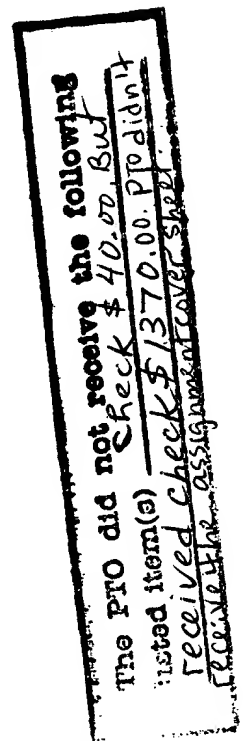 The PTO did not receive the following
listed item(s) Check $ 40.00. But
received check $1370.00. PTO didn't
receive the assignment cover sheet.